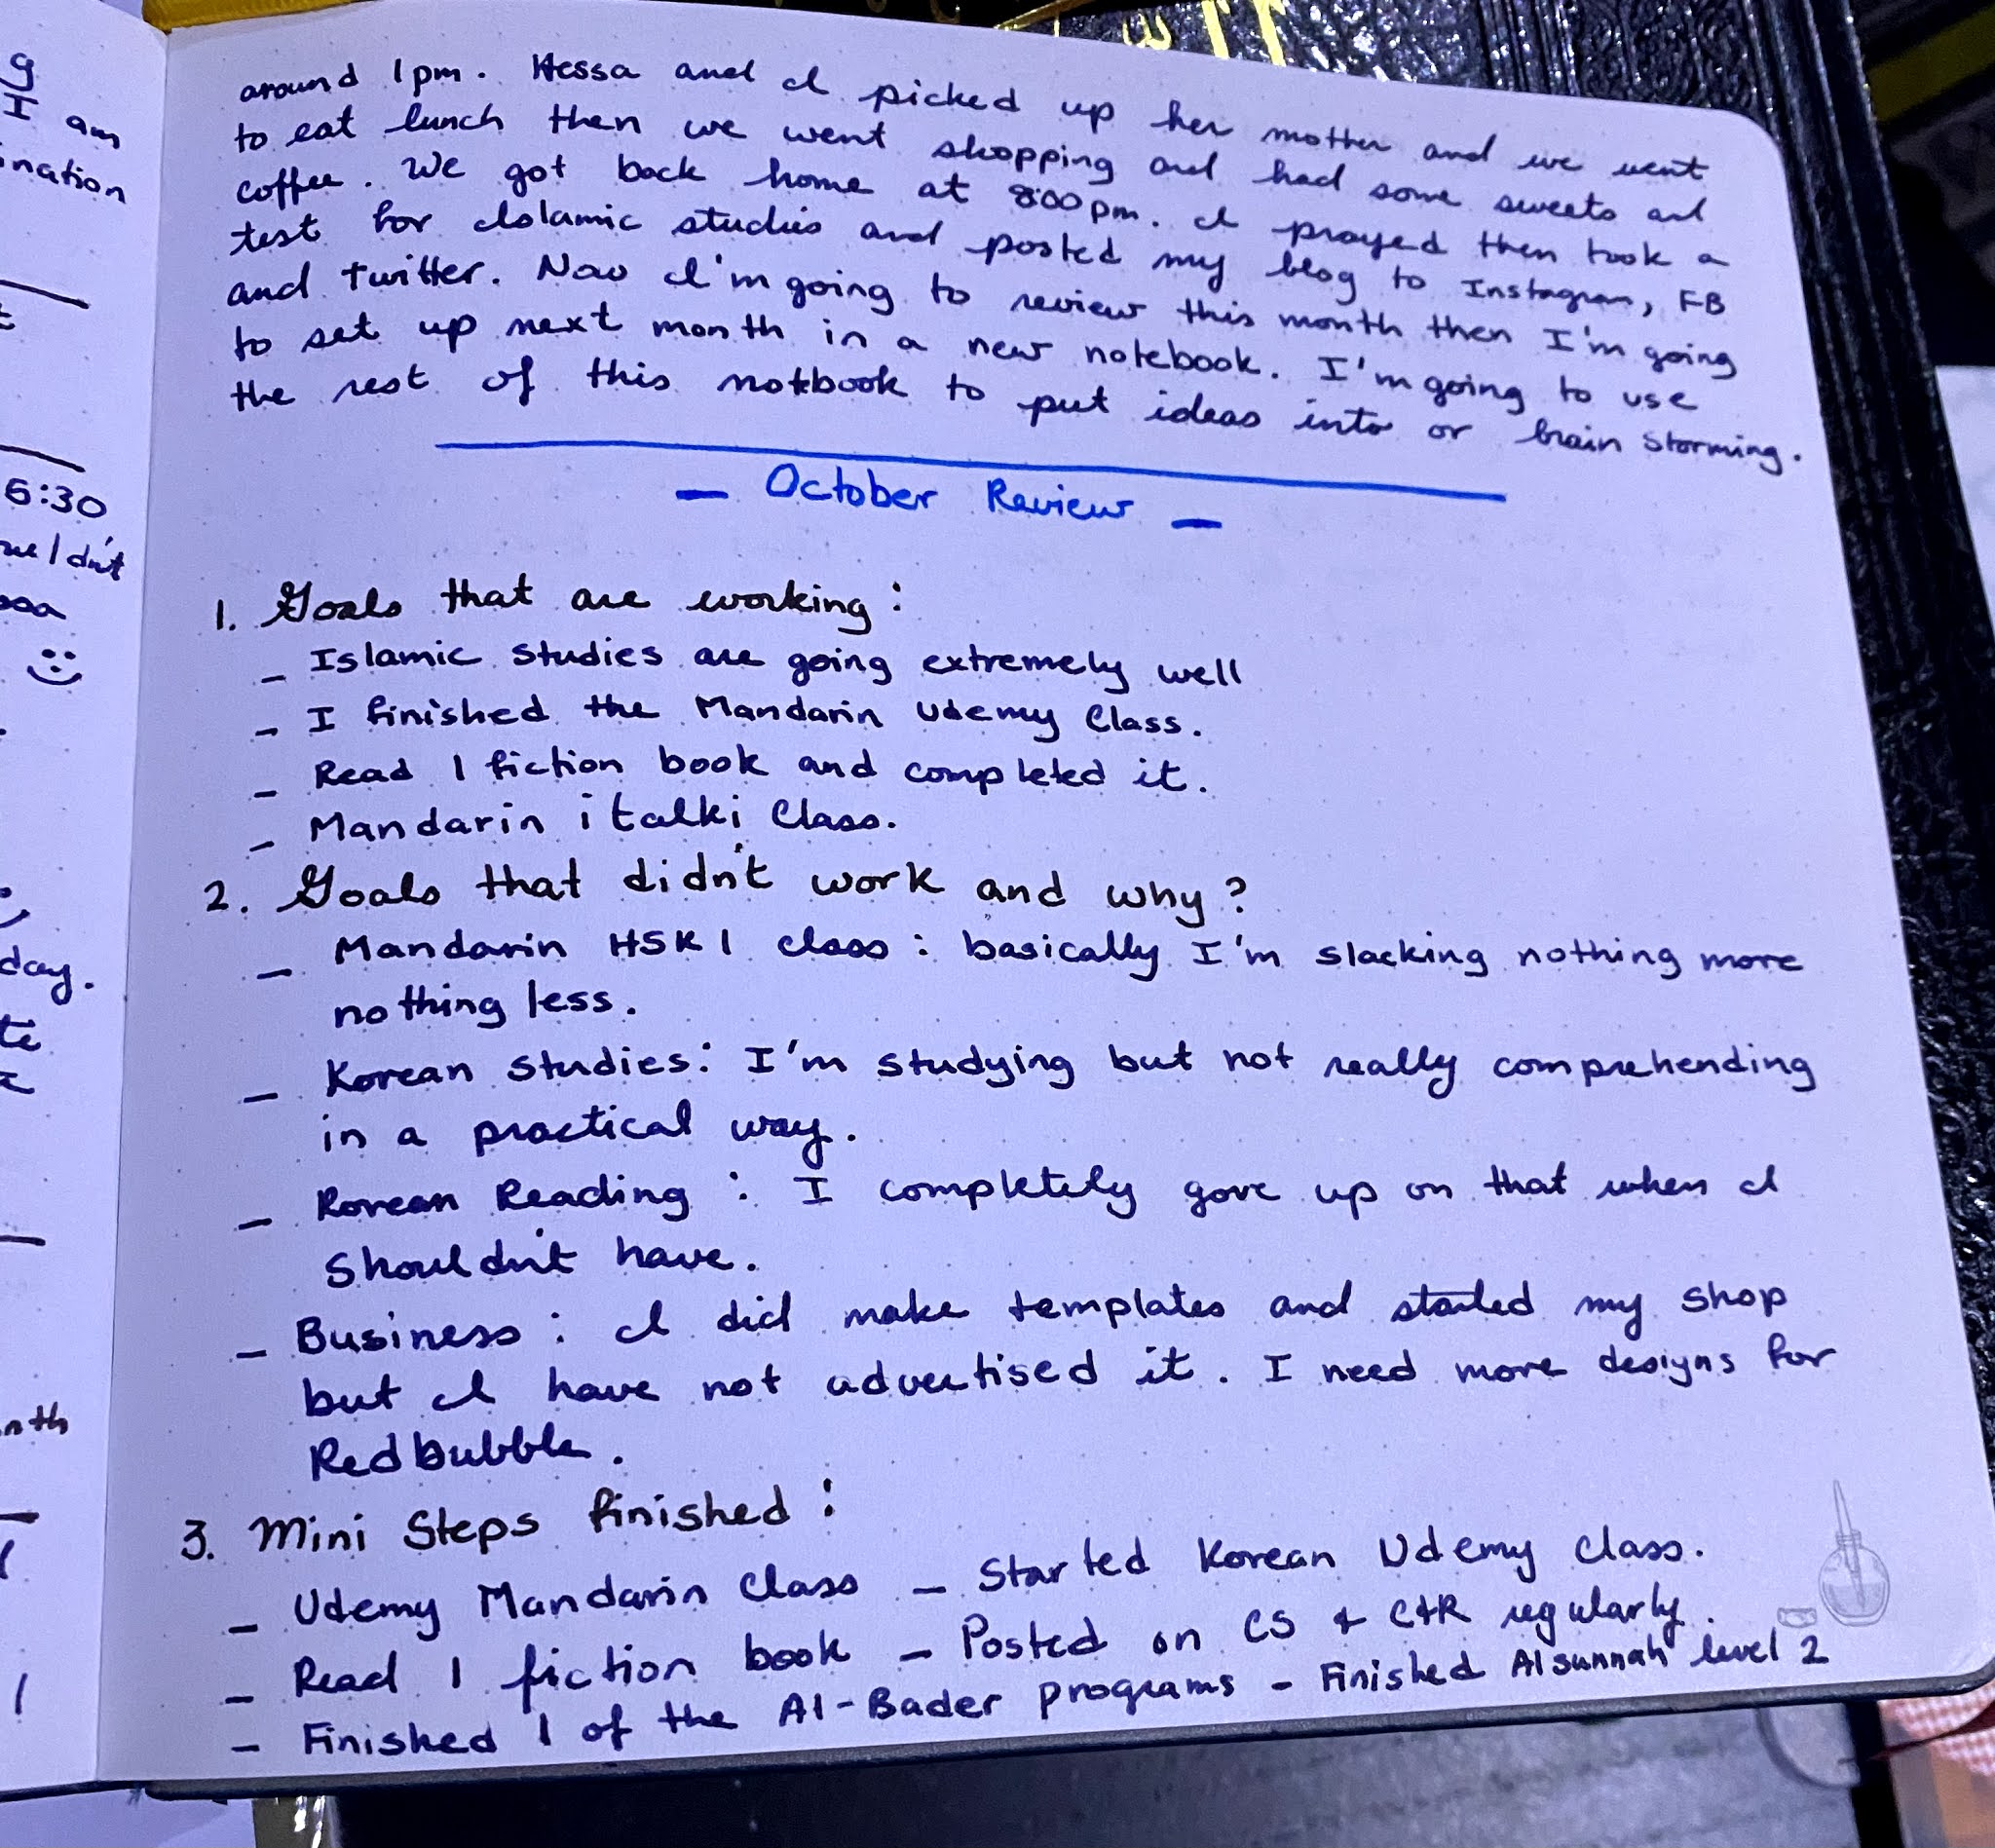 around 1pm. Hessa and I picked up her mother and we went
to eat lunch then we went shopping and had some sweets and
coffee. We got back home at 8:00pm. I prayed then took a
test for Islamic studies and posted my blog to Instagram, FB
and twitter. Now I'm going to review this month then I'm going
to set up next month in a new notebook. I'm going to use
the rest of this notebook to put ideas into or brain storming.
— October Review —
1. Goals that are working:
– Islamic Studies are going extremely well
– I finished the Mandarin Udemy Class.
– Read 1 fiction book and completed it.
– Mandarin italki Class.
2. Goals that didn't work and why?
– Mandarin HSK1 class: basically I'm slacking nothing more
nothing less.
– Korean Studies: I'm studying but not really comprehending
in a practical way.
– Korean Reading: I completely gave up on that when I
shouldn't have.
– Business: I did make templates and started my shop
but I have not advertised it. I need more designs for
Redbubble.
3. Mini Steps finished:
– Udemy Mandarin Class – Started Korean Udemy class.
– Read 1 fiction book – Posted on CS & C&R regularly.
– Finished 1 of the Al-Bader programs – Finished Alsunnah level 2
g
I am
ination
6:30
day.
nth